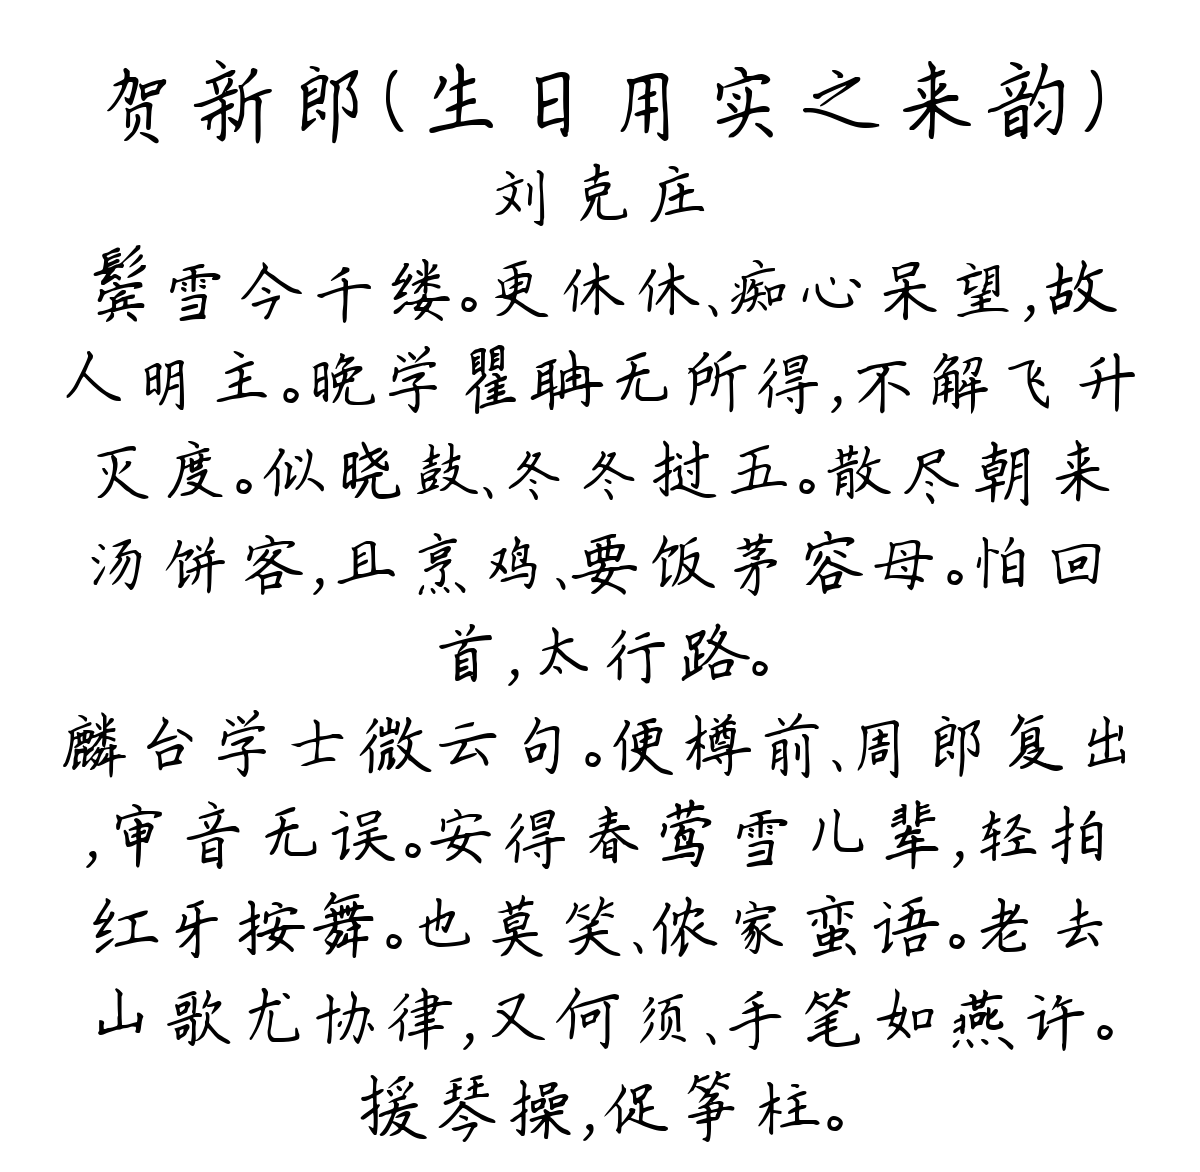 贺新郎(生日用实之来韵)
刘克庄
鬓雪今千缕。更休休、痴心呆望,故
人明主。晚学瞿聃无所得,不解飞升
灭度。似晓鼓、冬冬挝五。散尽朝来
汤饼客,且烹鸡、要饭茅容母。怕回
首,太行路。
麟台学士微云句。便樽前、周郎复出
,审音无误。安得春莺雪儿辈,轻拍
红牙按舞。也莫笑、侬家蛮语。老去
山歌尤协律,又何须、手笔如燕许。
援琴操,促筝柱。